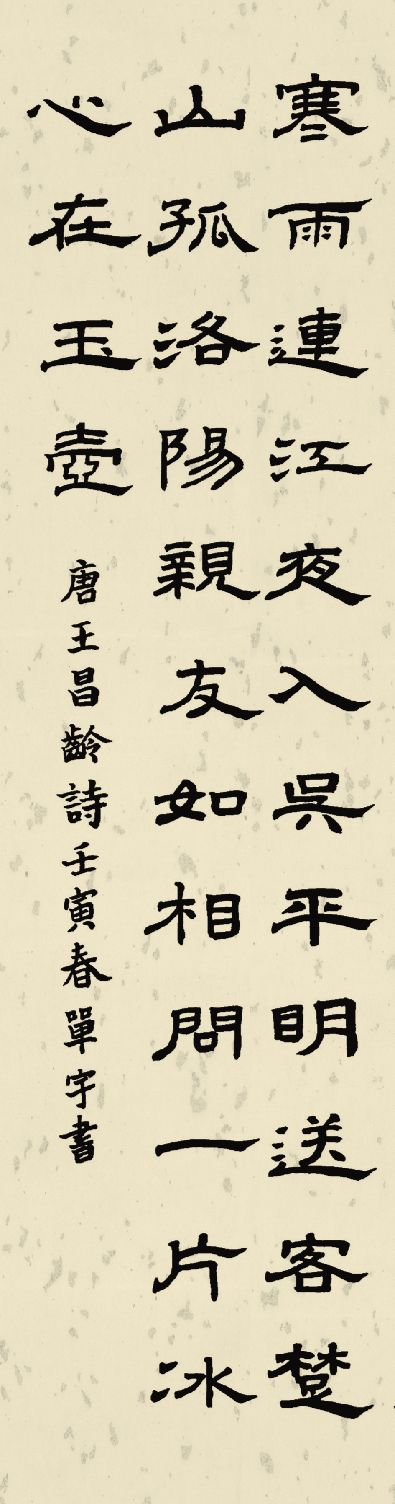 寒雨連江夜入吳平明送客楚
山孤洛陽親友如相問一片冰
心在玉壺
唐王昌齡詩壬寅春單宇書